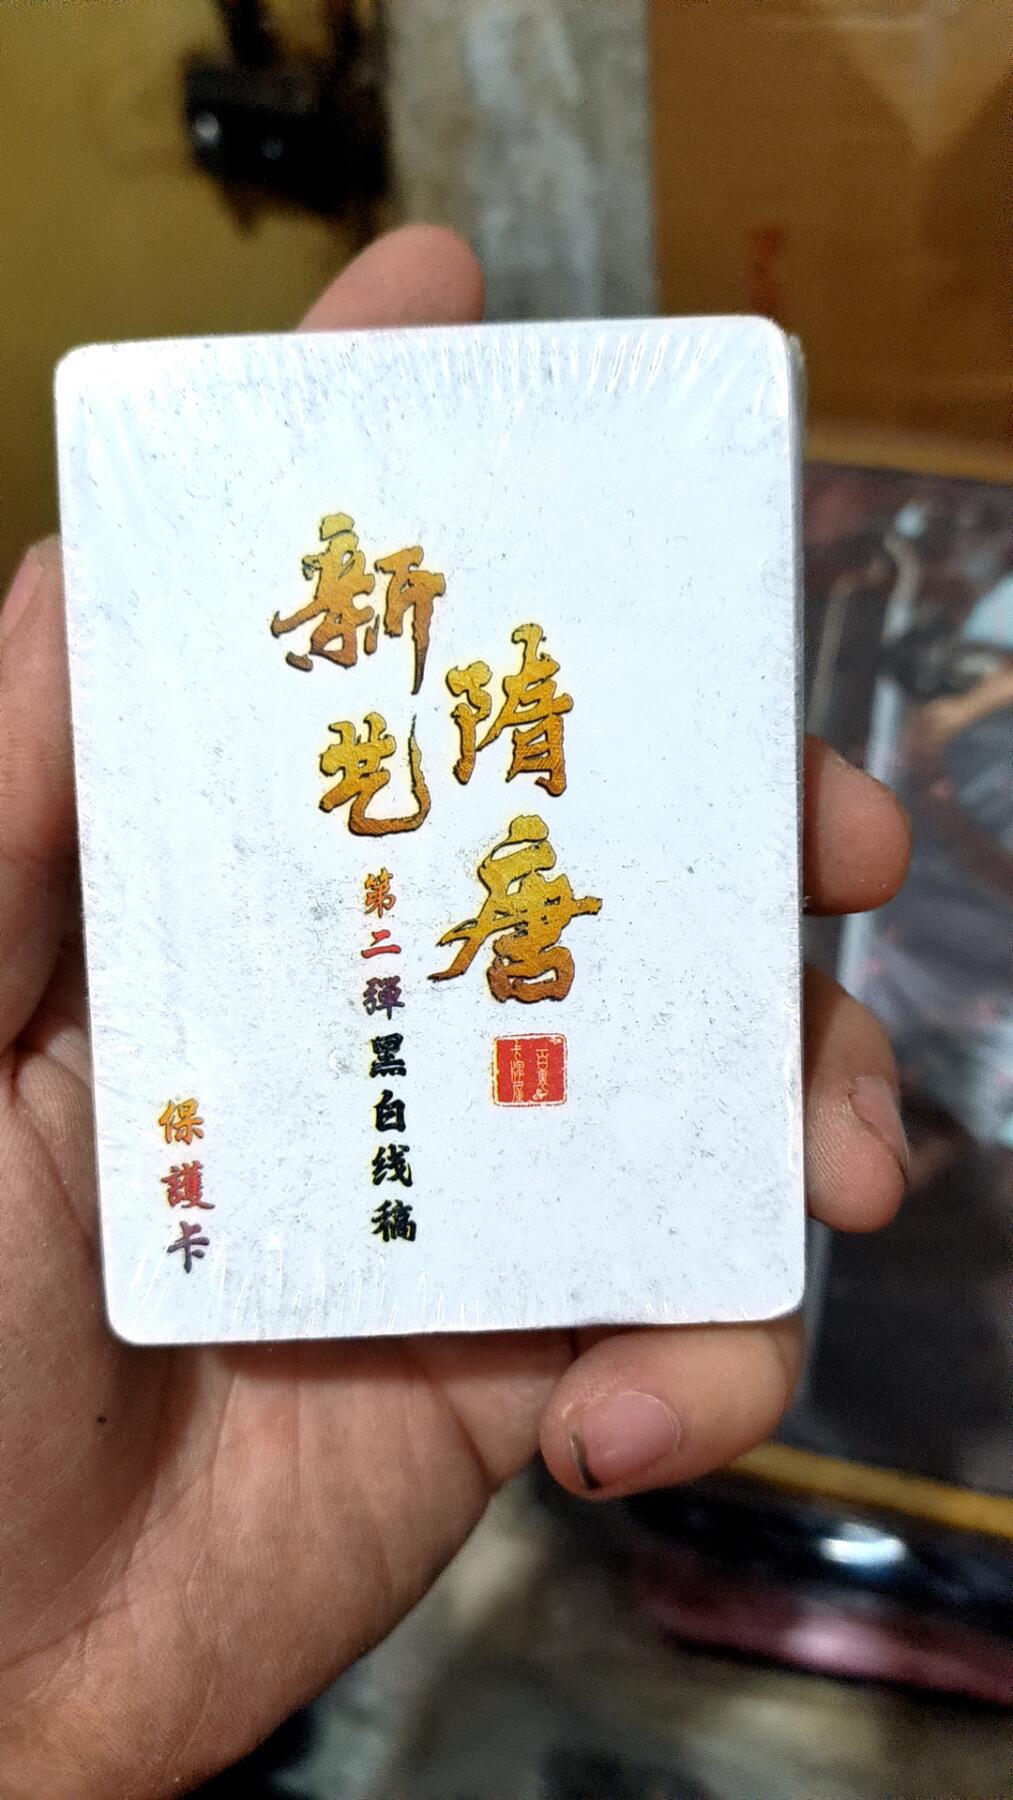 新艺
隋唐
第二弹黑白线稿
保護卡